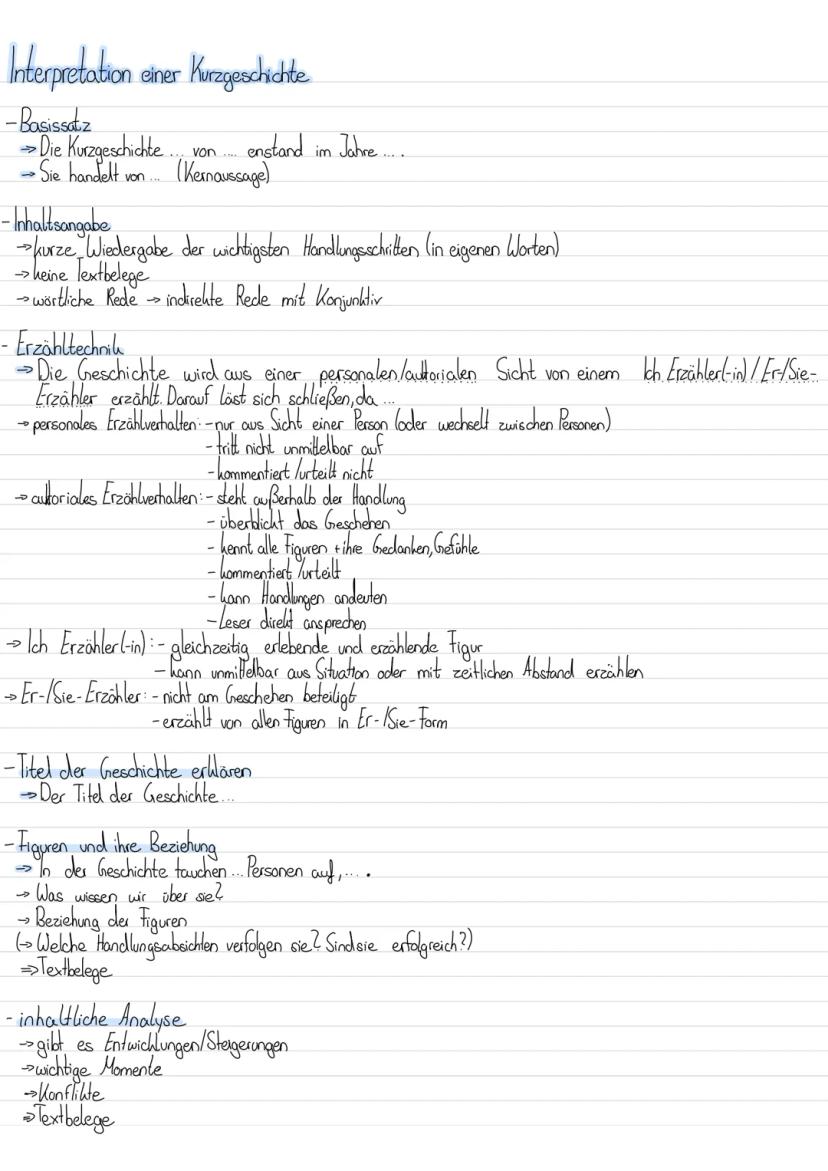 Interpretation einer Kurzgeschichte
- Basissatz
→ Die Kurzgeschichte ... von .... enstand im Jahre ....
→ Sie handelt von ... (Kernaussage)
- Inhaltsangabe
→ kurze Wiedergabe der wichtigsten Handlungsschritten (in eigenen Worten)
→ keine Textbelege
→ wörtliche Rede → indirekte Rede mit Konjunktiv
- Erzähltechnik
→ Die Geschichte wird aus einer personalen/auktorialen Sicht von einem Ich Erzähler(-in) / Er-/Sie-
Erzähler erzählt. Darauf läst sich schließen, da ...
→ personales Erzählverhalten: - nur aus Sicht einer Person (oder wechselt zwischen Personen)
- tritt nicht unmittelbar auf
- kommentiert /urteilt nicht
→ auktoriales Erzählverhalten: - steht außerhalb der Handlung
- überblickt das Geschehen
- kennt alle Figuren + ihre Gedanken, Gefühle
- kommentiert /urteilt
- kann Handlungen andeuten
- Leser direkt ansprechen
→ Ich Erzähler(-in): - gleichzeitig erlebende und erzählende Figur
- kann unmittelbar aus Situation oder mit zeitlichen Abstand erzählen
→ Er-/Sie-Erzähler: - nicht am Geschehen beteiligt
- erzählt von allen Figuren in Er-/Sie-Form
- Titel der Geschichte erklären
→ Der Titel der Geschichte ...
- Figuren und ihre Beziehung
→ In der Geschichte tauchen ... Personen auf, ... .
→ Was wissen wir über sie?
→ Beziehung der Figuren
(→ Welche Handlungsabsichten verfolgen sie? Sind sie erfolgreich?)
⇒ Textbelege
- inhaltliche Analyse
→ gibt es Entwicklungen/Steigerungen
→ wichtige Momente
→ Konflikte
⇒ Textbelege